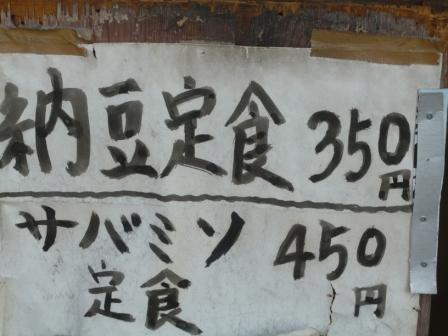 納豆定食 350円
サバミソ 450円
定食